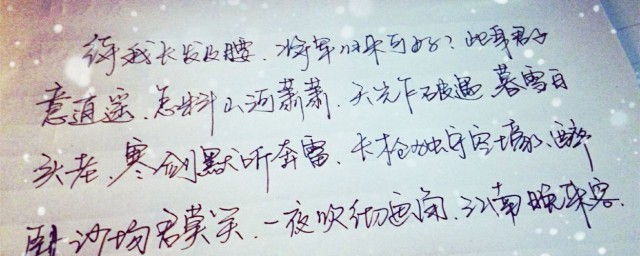 待我长发及腰,将军归来可好?此身君子
意逍遥,怎料山河萧萧,天光乍破遇,暮雪白
头老,寒剑默听奔雷,长枪独守空壕,醉
卧沙场君莫笑,一夜吹彻画角,江南晚来客